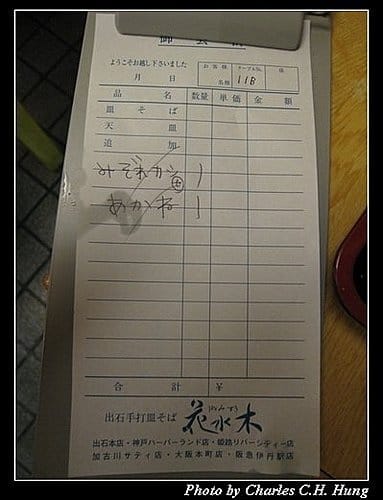 御会計
ようこそお越し下さいました
月 日
お客様
名様
テーブルNo.
11B
係
品 名 数量 単価 金 額
皿そば
天 皿
追 加
みぞれカシ 1
あかね 1
合 計 ¥
出石手打皿そば
はなみずき
花水木
出石本店・神戸ハーバーランド店・姫路リバーシティー店
加古川サティ店・大阪本町店・阪急伊丹駅店
Photo by Charles C.H. Hung